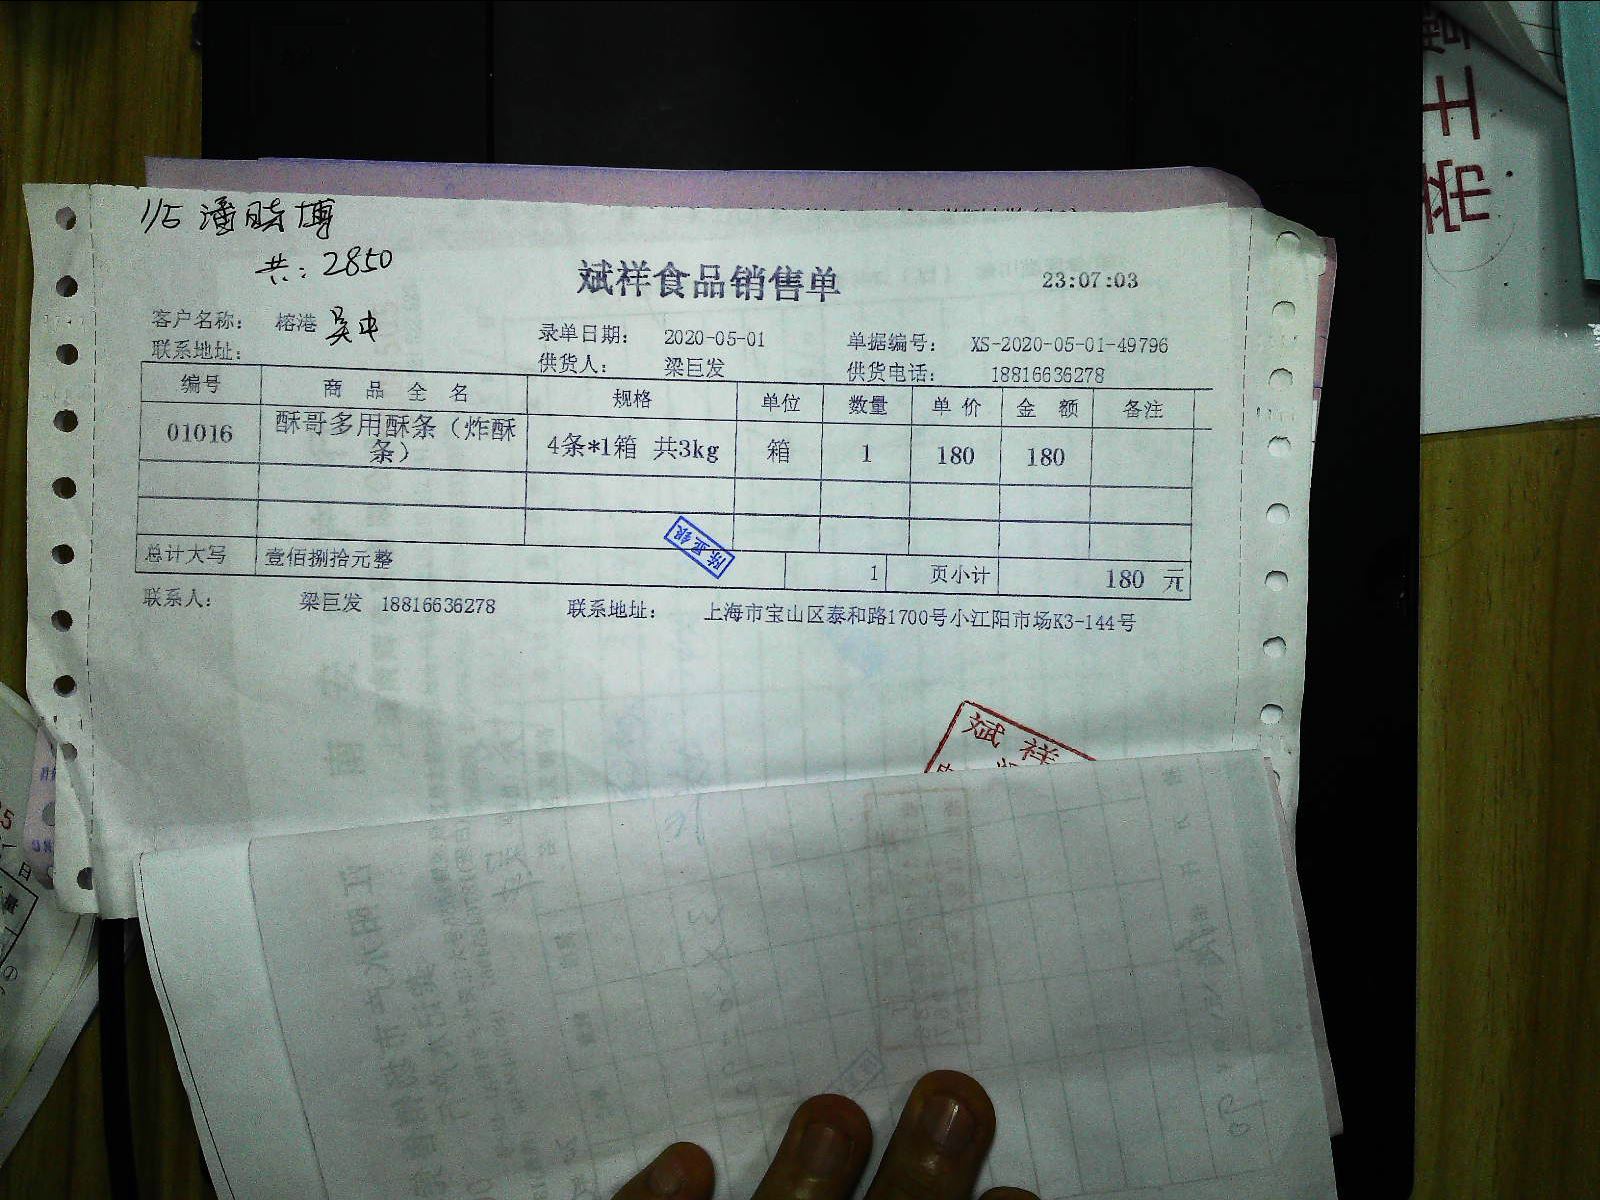 1/5 潘晓博
共：2850
斌祥食品销售单
23:07:03
客户名称： 榕港 吴中
录单日期： 2020-05-01
单据编号： XS-2020-05-01-49796
联系地址：
供货人： 梁巨发
供货电话： 18816636278
编号 商品全名 规格 单位 数量 单价 金额 备注
01016 酥哥多用酥条（炸酥条） 4条*1箱 共3kg 箱 1 180 180
陈显银
总计大写 壹佰捌拾元整 1 页小计 180 元
联系人： 梁巨发 18816636278 联系地址： 上海市宝山区泰和路1700号小江阳市场K3-144号
斌祥
帝王